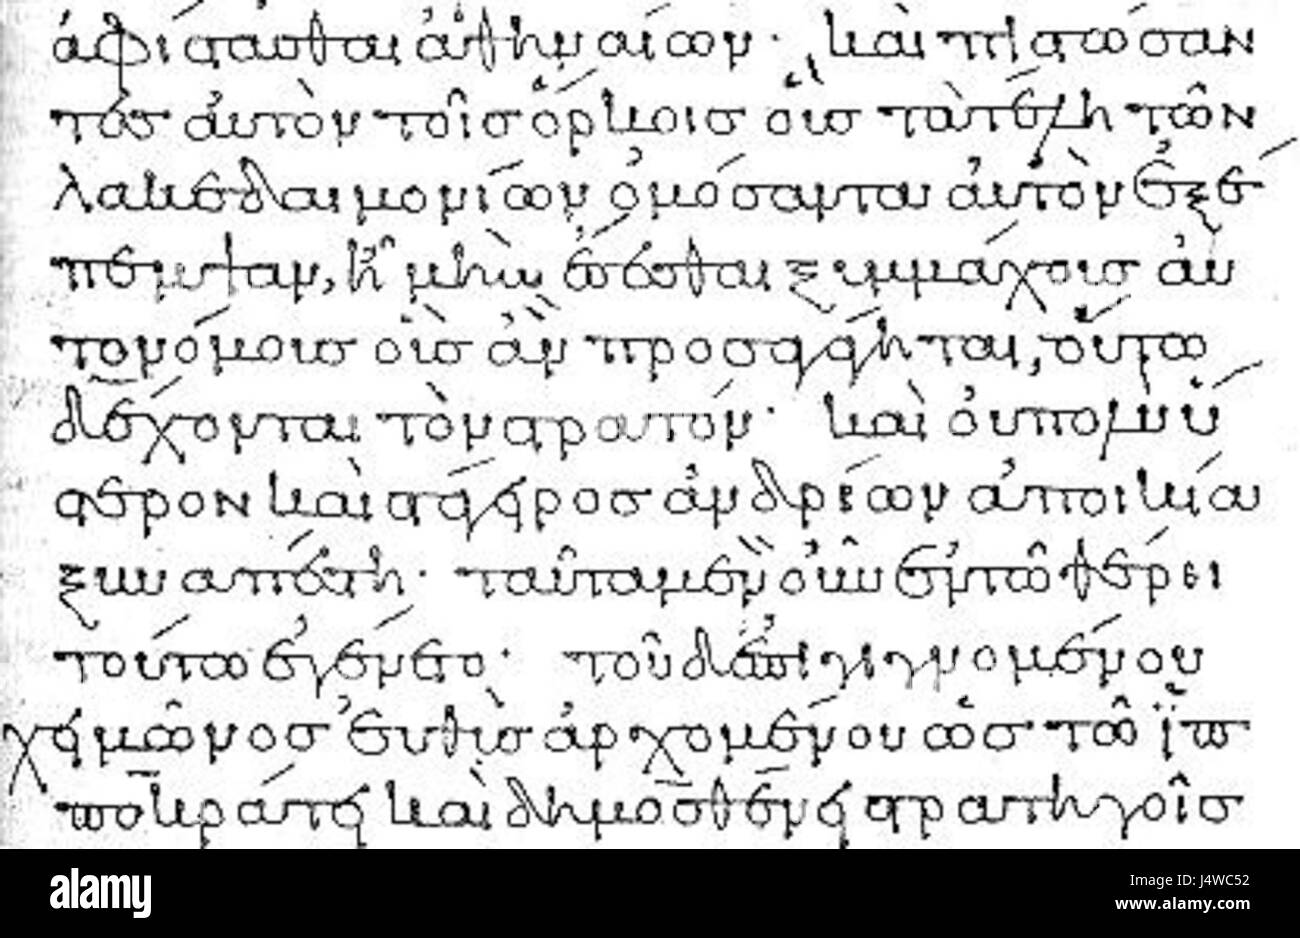 ἀφίστασθαι ἀθηναίων· καὶ πιστώσαν
τες αὐτὸν τοῖς ὅρκοις οἷς τὰ τέλη τῶν
λακεδαιμονίων ὀμόσαντα αὐτὸν ἐξέ
πεμψαν, ἦ μὴν ἔσεσθαι ξυμμάχους αὐ
τονόμους οὓς ἂν προσαγάγηται, οὕτω
δέχονται τὸν στρατόν· καὶ οὐ πολὺ ὕ
στερον καὶ στάγειρος ἀνδρίων ἀποικία
ξυναπέστη· ταῦτα μὲν οὖν ἐν τῶ θέρει
τούτω ἐγένετο· τοῦ δ' ἐπιγιγνομένου
χειμῶνος εὐθὺς ἀρχομένου ὡς τῶ ἱπ
ποκράτει καὶ δημοσθένει στρατηγοῖς
alamy
Image ID: J4WC52
www.alamy.com